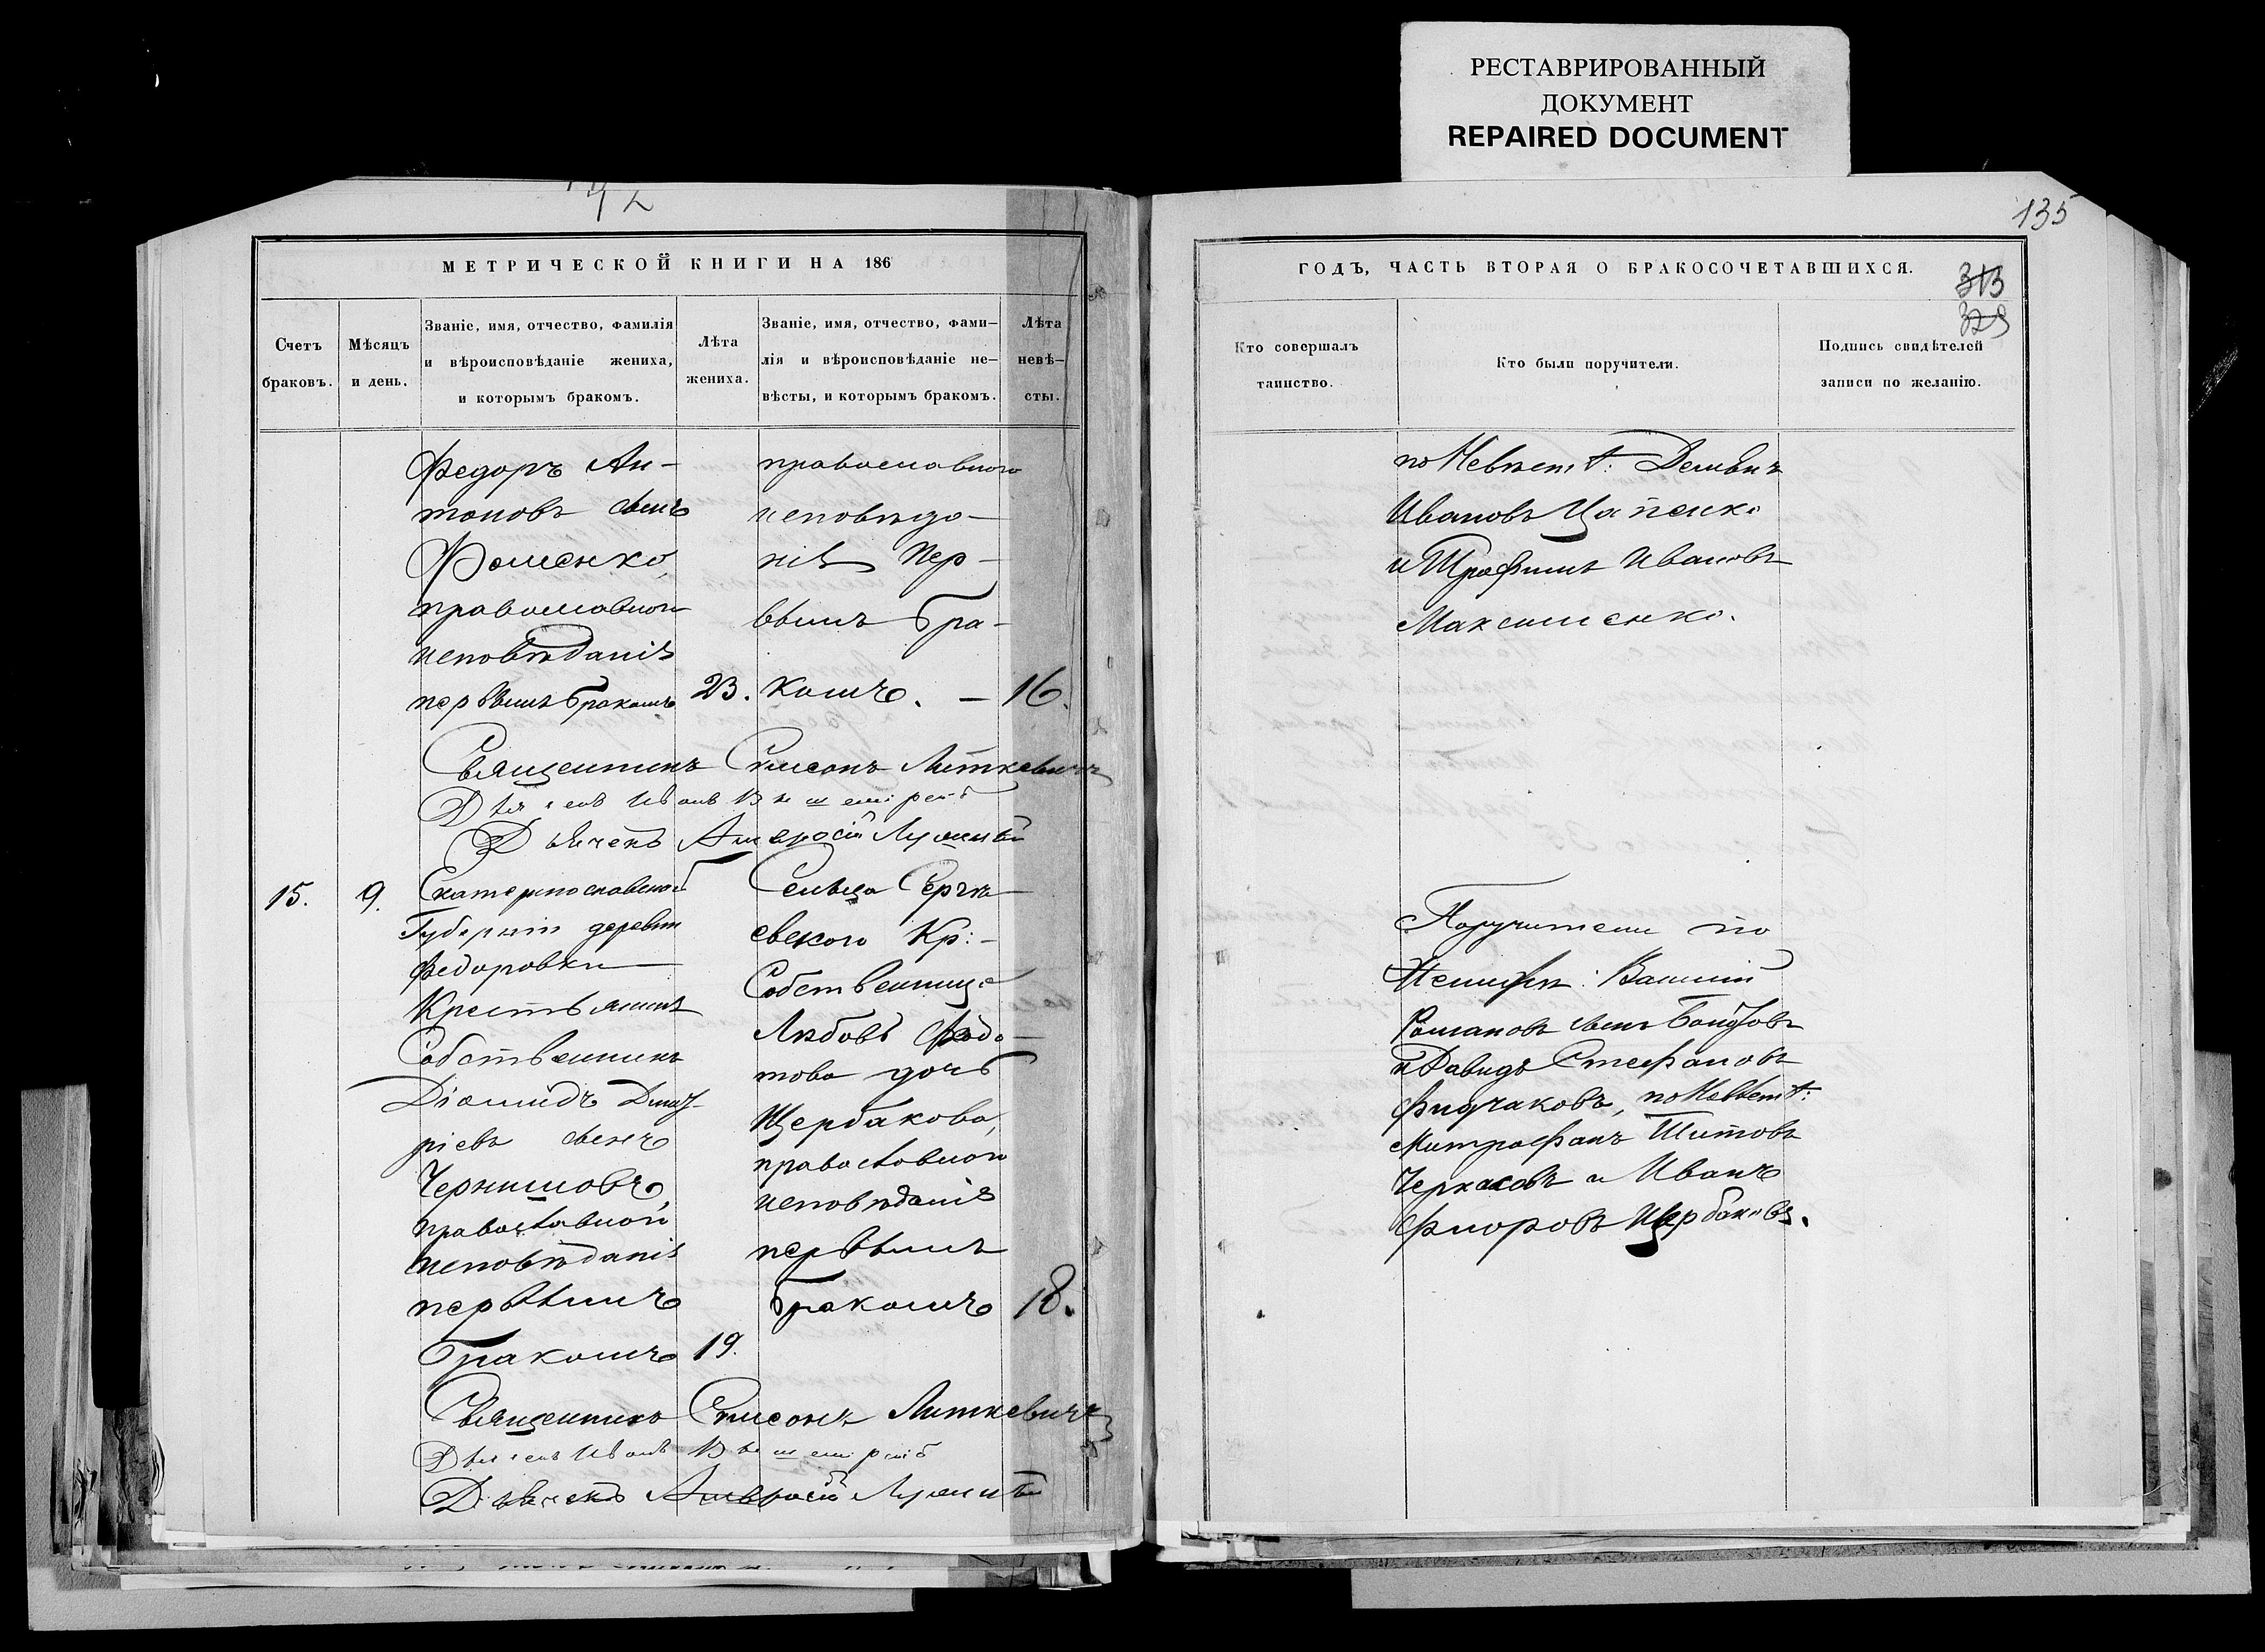 РЕСТАВРИРОВАННЫЙ
ДОКУМЕНТ
REPAIRED DOCUMENT
42
МЕТРИЧЕСКОЙ КНИГИ НА 186
Счетъ
браковъ.
Мѣсяцъ
и день.
Званіе, имя, отчество, фамилія
и вѣроисповѣданіе жениха,
и которымъ бракомъ.
Лѣта
жениха.
Званіе, имя, отчество, фами–
лія и вѣроисповѣданіе не–
вѣсты, и которымъ бракомъ.
Лѣта
невѣ–
сты.
Федоръ Ан-
тоновъ сынъ
Фоменко,
православнои
исповѣданія
первымъ бракомъ
23.
православного
исповѣда-
нія пер-
вымъ бра-
комъ. —
16.
Священникъ Симеонъ Литкевичъ
Амвросій
15.
9.
Екатеринославской
Губерніи деревни
Федоровки
Крестьянинъ
Собственникъ
Діомидъ Дмит-
ріевъ сынъ
Чернишовъ,
православной
исповѣданія
первымъ
бракомъ
19.
Сельца
Кр:-
Собственница
Любовь Федо-
това дочь
Щербакова,
православнои
исповѣданія
первымъ
бракомъ
18.
Священникъ Симеонъ Литкевичъ
Амвросій
135
ГОДЪ, ЧАСТЬ ВТОРАЯ О БРАКОСОЧЕТАВШИХСЯ.
313
329
Кто совершалъ
таинство.
Кто были поручители.
Подпись свидѣтелей
записи по желанію.
по Невѣст:
Ивановъ Цапенко
и Трофимъ Ивановъ
Максименко.
Поручители по
Женихѣ: Василій
Романовъ сынъ
и Давидъ Стефановъ
по Невѣст:
Митрофанъ Титовъ
Черкасовъ и Иванъ
Флоровъ Щербаковъ.